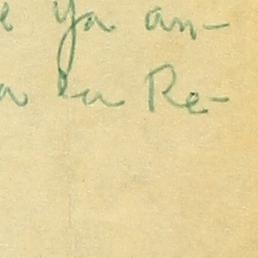 e ya an-
a la Re-